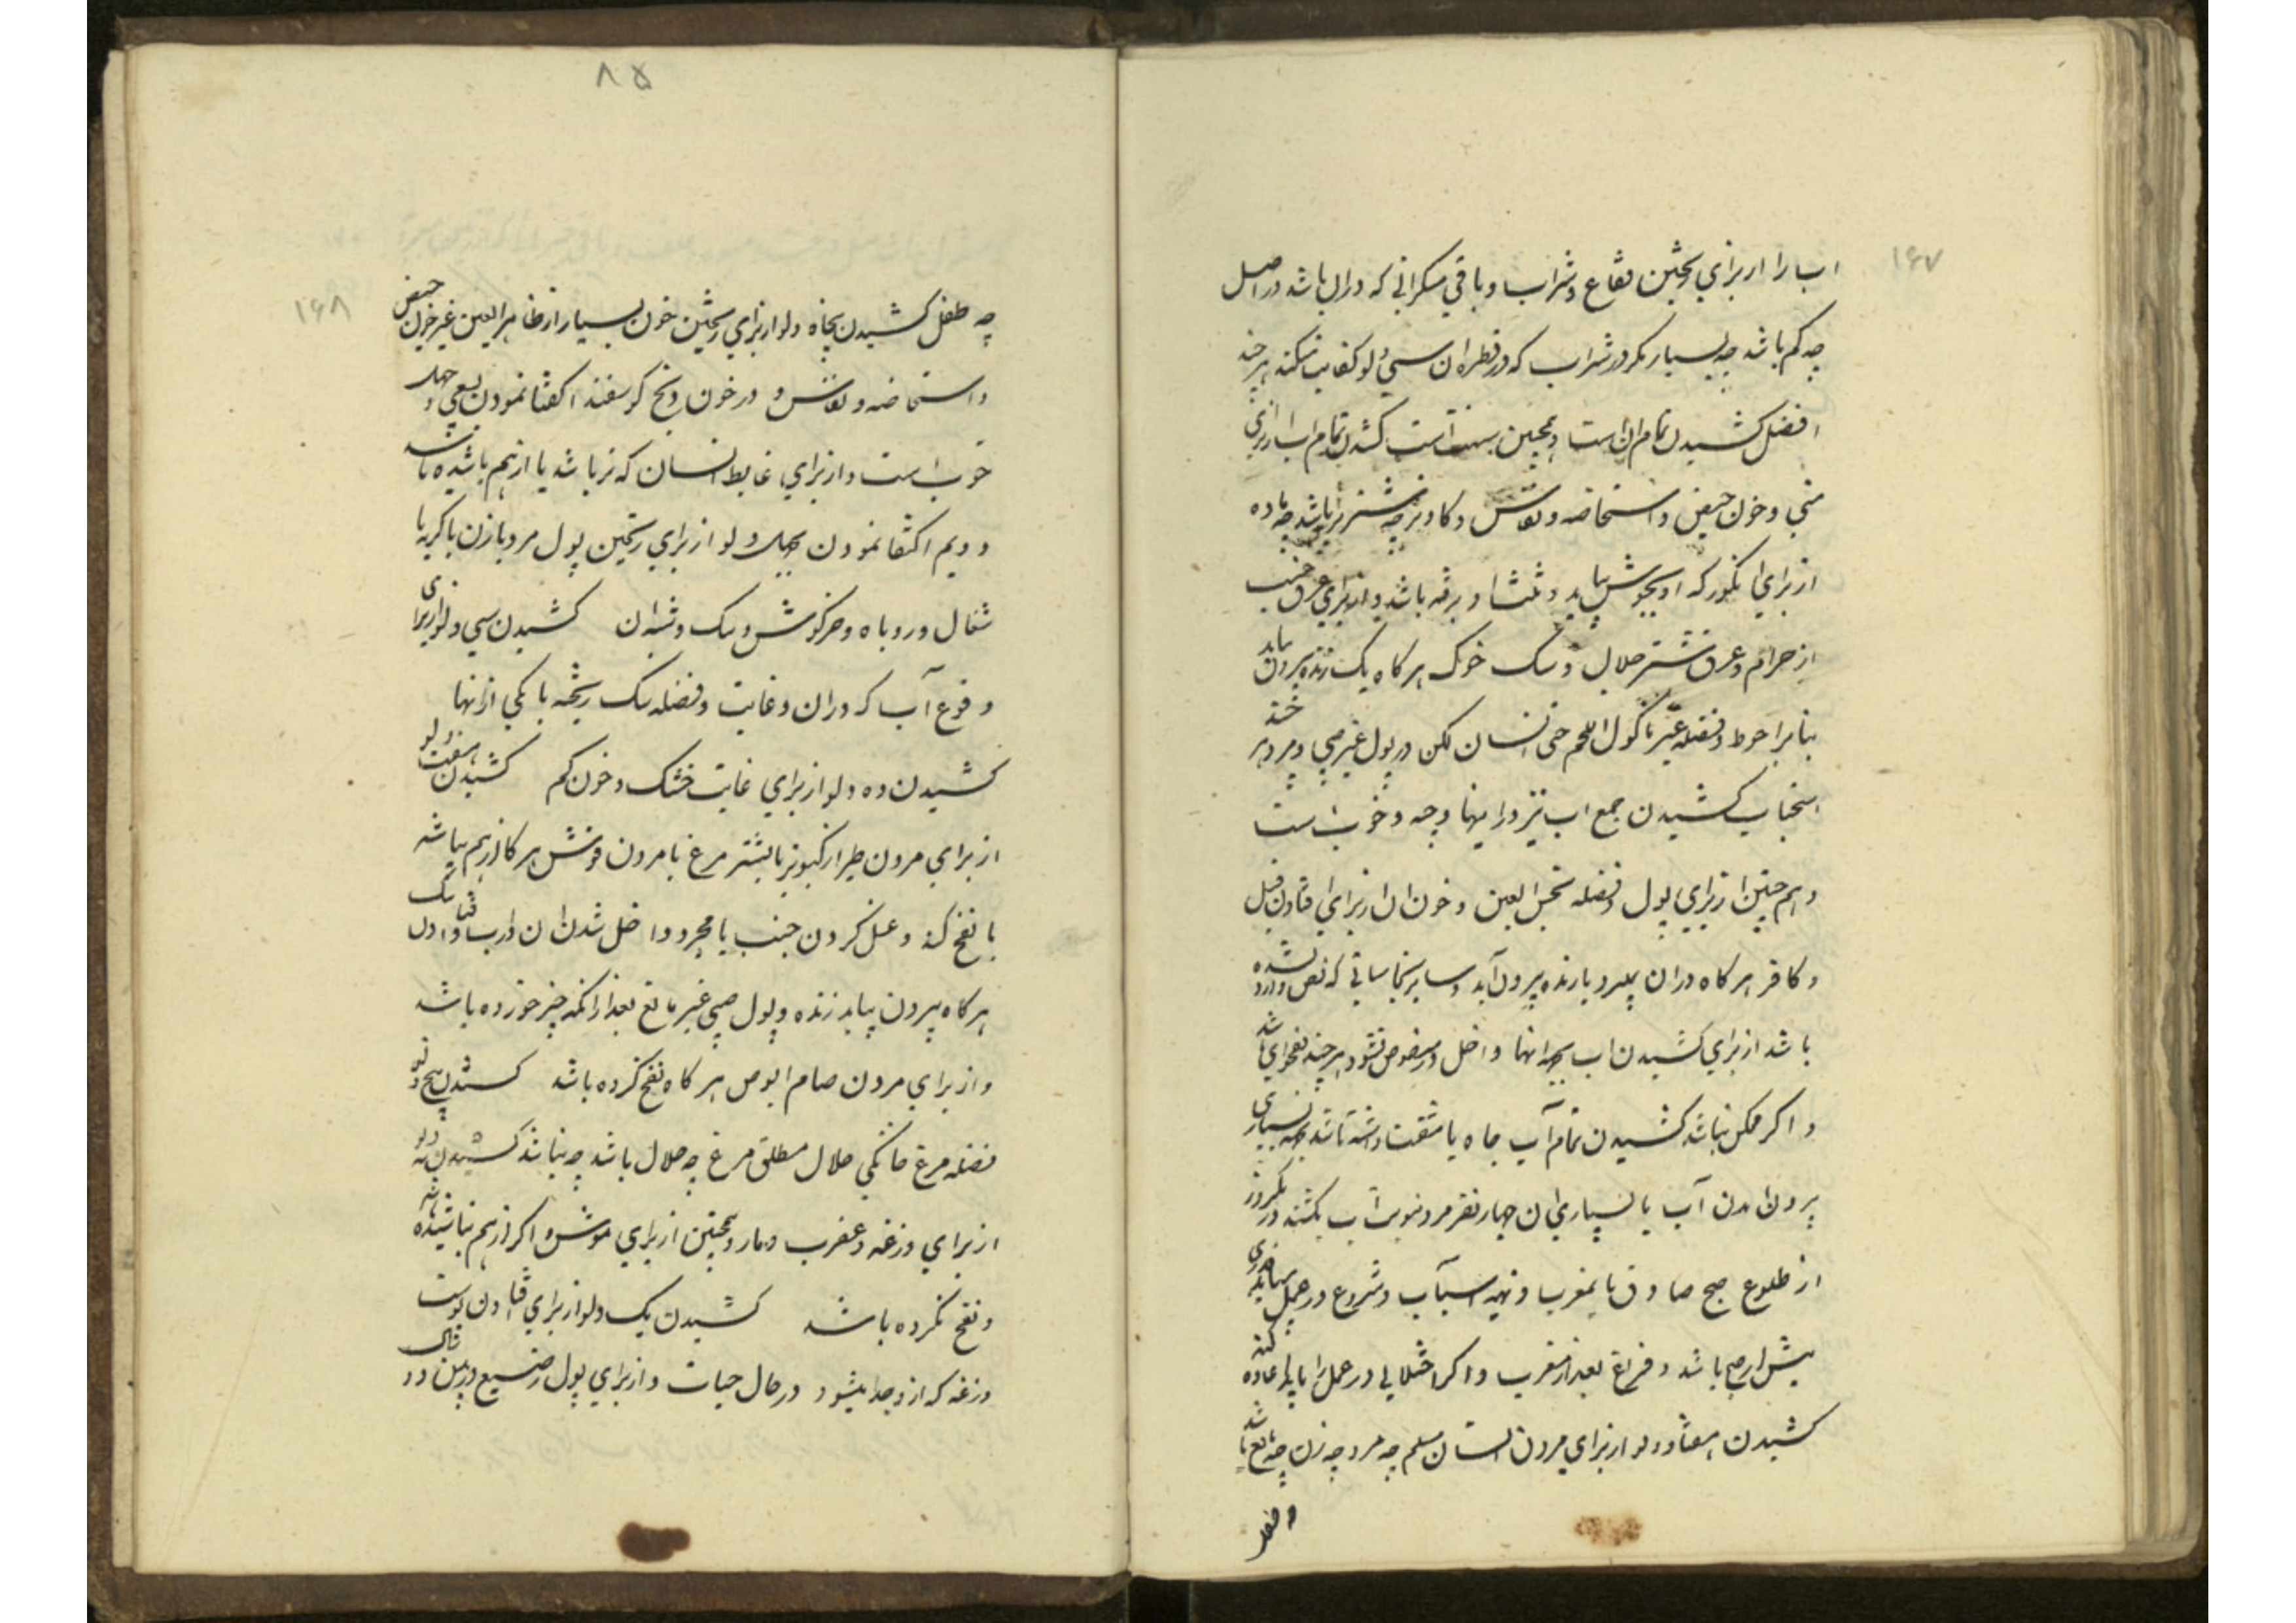 ۱۶۷
اب را از برای ریختن فقاع و شراب و باقی مسکراتی که در ان باشد در اصل
چه کم باشد چه بسیار مکر در شراب که در قطره ان سی دلو کفایت میکند هر چند
افضل کشیدن تمام ان است و همچنین است کشیدن تمام اب از برای
منی و خون حیض و استحاضه و نفاس و کاو نر چه شتر نر باشد چه ماده
از برای انکور که او بجوش بیاید و ثلثا او نرفته باشد و از برای عرق جنب
از حرام و عرق شتر جلال و سک خوک هر کاه یک زنده بیرون بیاید
بنابر احوط و فضله غیر ماکول اللحم حتی انسان لکن در بول غیر صبی و مرد بر
استحباب کشیدن جمع اب نیز در اینها وجه و خوب است
و هم چنین از برای بول و فضله نجس العین و خون ان از برای افتادن فیل
و کافر هر کاه در ان بمیرد یا زنده بیرون آید و سایر نجاساتی که نص وارد نشده
باشد از برای کشیدن اب بجهة انها و داخل در منصوص نشود هر چند بفحوای باشد
و اکر ممکن نباشد کشیدن تمام آب چاه یا مشقت داشته باشد بجهة بسیاری
بیرون امدن آب یا بسیاری ان چهار نفر مرد بنوبت آب بکشند در یکروز
از طلوع صبح صادق تا بمغرب و تهیه اسباب و شروع در عمل
پیش از صبح باشد و فراغ بعد از مغرب و اکر اختلالی در عمل را یابد اعاده کنند
کشیدن هفتاد دلو از برای مردن انسان مسلم چه مرد چه زن چه بالغ باشد
۸۵
۱۶۸
چه طفل کشیدن پنجاه دلو از برای ریختن خون بسیار از ظاهر العین غیر خون حیض
و استحاضه و نفاس و در خون ذبح کوسفند اکتفا نمودن بسی چهل دلو
خوب است و از برای غایط انسان که تر باشد یا از هم پاشیده باشد
دویم اکتفا نمودن بچهل دلو از برای ریختن بول مرد یا زن یا کربه یا
شغال و روباه و خرکوش و سک و شبه ان کشیدن سی دلو از برای
وقوع آب که در ان و غایت و فضله سک ریخته یا یکی از انها
کشیدن ده دلو از برای غایت خشک و خون کم کشیدن هفت دلو
از برای مردن طیر از کبوتر تا بشتر مرغ یا مردن موش هر کاه از هم بپاشد
یا نفخ کند و غسل کردن جنب یا مجرد داخل شدن ان در اب و افتادن سک
هر کاه بیرون بیاید زنده و بول صبی غیر بالغ بعد از انکه چیز خورده باشد
و از برای مردن صام ابرص هر کاه نفخ کرده باشد کشیدن پنج دلو
فضله مرغ خانکی جلال مطلق مرغ چه جلال باشد چه نباشد کشیدن سه دلو
از برای وزغه و عقرب و مار و همچنین از برای موش اکر از هم نپاشیده باشد
و نفخ نکرده باشد کشیدن یک دلو از برای افتادن پوست
وزغه که از او جدا میشود در حال حیات و از برای بول رضیع در بین دو سال